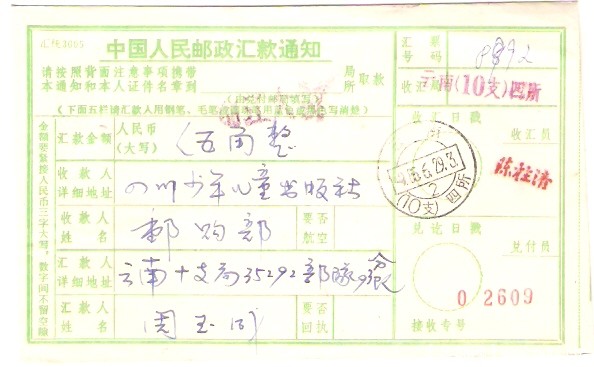 汇统3005
中国人民邮政汇款通知
请按照背面注意事项携带
本通知和本人证件各章到
局所
取款
(由兑付邮局填写)
(下面五栏请汇款人用钢笔、毛笔
汇票号码
收汇局 云南(10支)四所
收汇日戳
收汇员
陈柱清
汇款金额 人民币(大写) 五角整
收款人详细地址 四川少年儿童出版社
收款人姓名 邮购部
要否航空
汇款人详细地址 云南十支局35292部队
汇款人姓名 周玉
要否回执
86.6.29.3
2
(10支)四所
兑讫日戳
兑付员
0 2609
接收专号
金额要紧接人民币三字大写，数字间不留空隙